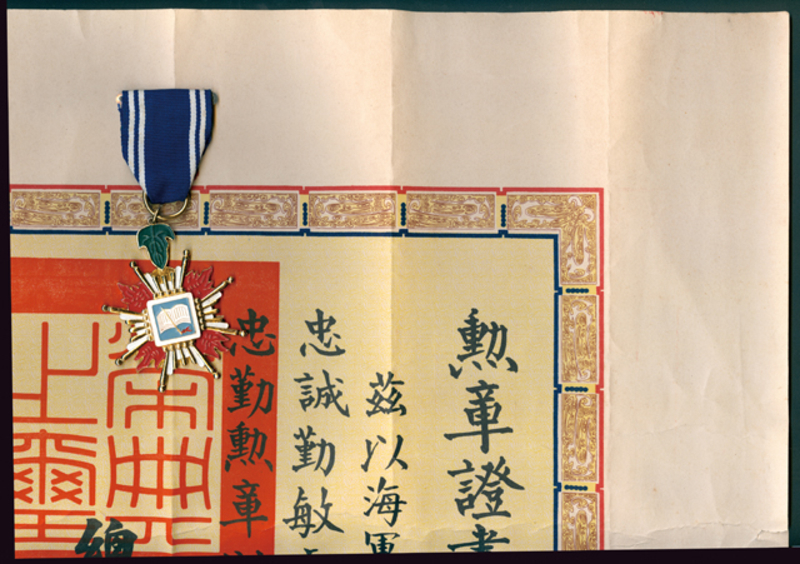 勳章證書
茲以海軍
忠誠勤敏
忠勤勳章
總
榮典之璽